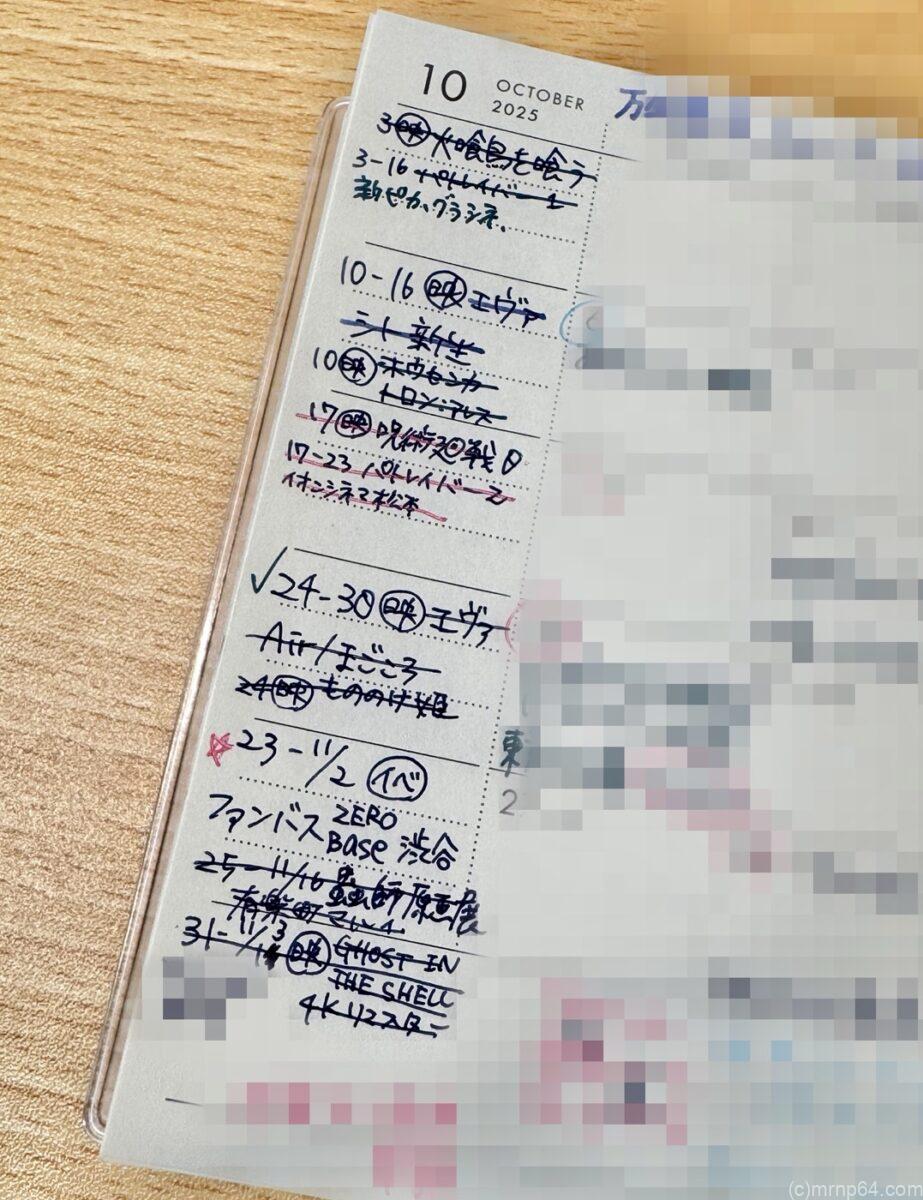 10 OCTOBER
2025
万
3 映 火喰鳥を喰う
3-16 パトレイバー1
新ピカ、グラシネ、
10-16 映 エヴァ
シト新生
10 映 ホウセンカ
トロン:アレス
17 映 呪術廻戦0
17-23 パトレイバー2
イオンシネマ松本
✓24-30 映 エヴァ
Air/まごころ
24 映 もののけ姫
☆23-11/2 イベ
ファンバス ZERO
Base 渋谷
東
2
25-11/16 蟲師原画展
有楽町マルイ
31-11/13 映 GHOST IN
THE SHELL
4Kリマスター
(c)mrnp64.com